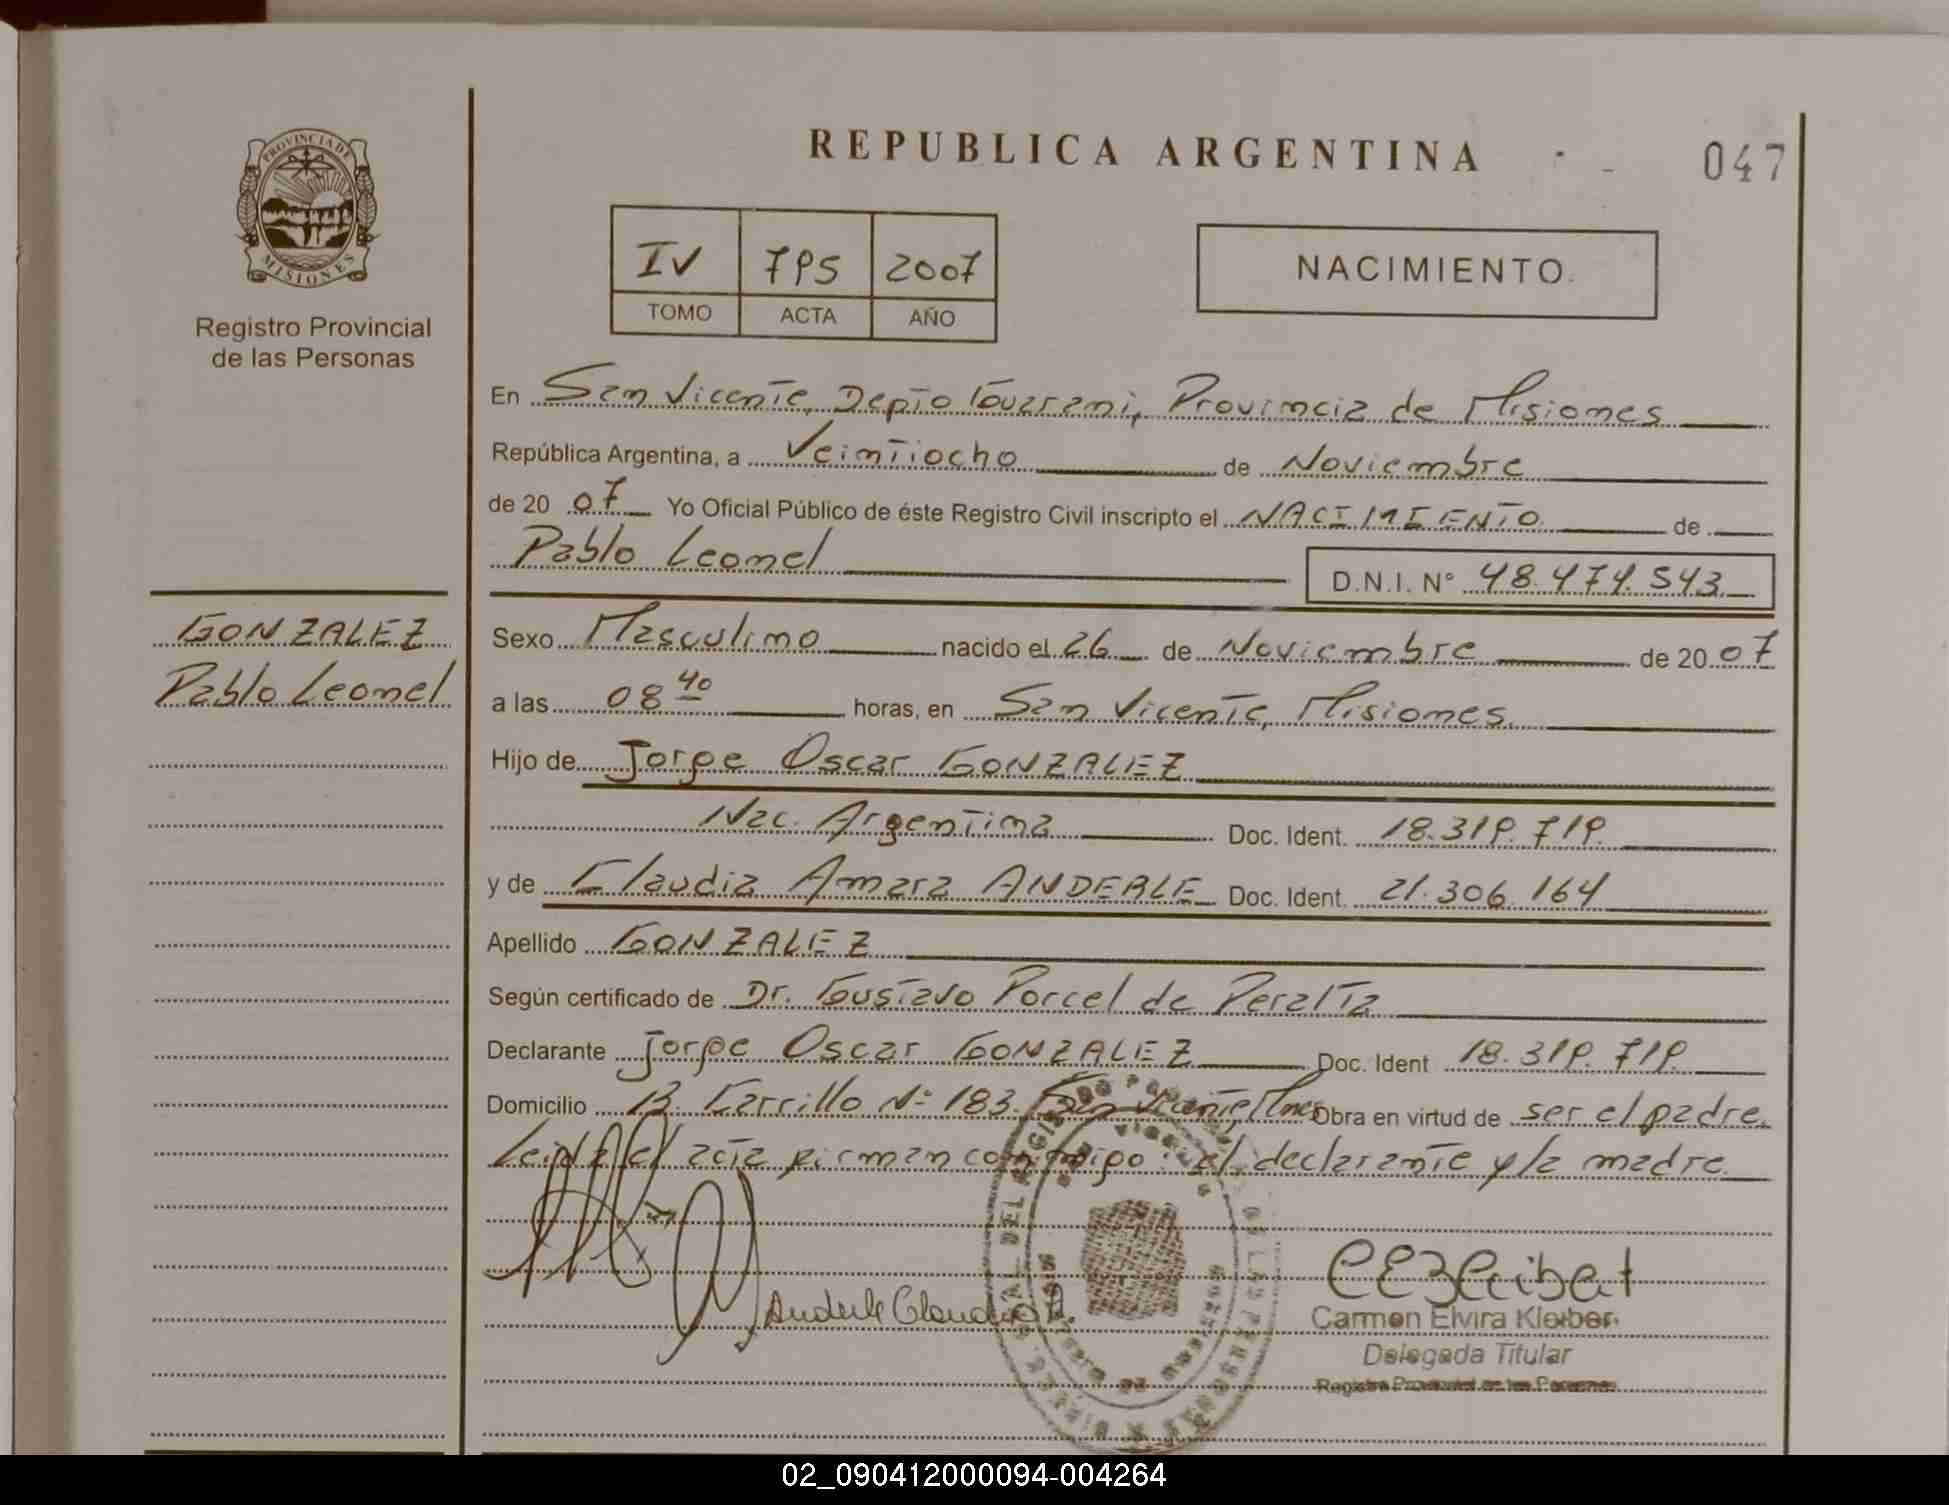 PROVINCIA DE
MISIONES
Registro Provincial
de las Personas
GONZALEZ
Pablo Leonel
REPUBLICA ARGENTINA
047
IV 795 2007
TOMO ACTA AÑO
NACIMIENTO.
En San Vicente, Depto Guarani, Provincia de Misiones
República Argentina, a Veintiocho de Noviembre
de 20 07 Yo Oficial Público de éste Registro Civil inscripto el NACIMIENTO de
Pablo Leonel D.N.I. N° 48.474.543
Sexo Masculino nacido el 26 de Noviembre de 20 07
a las 08 40 horas, en San Vicente, Misiones
Hijo de Jorge Oscar GONZALEZ
Nac. Argentina Doc. Ident. 18.319.719.
y de Claudia Amara ANDERLE Doc. Ident. 21.306.164
Apellido GONZALEZ
Según certificado de Dr. Gustavo Porcel de Peralta
Declarante Jorge Oscar GONZALEZ Doc. Ident 18.319.719.
Domicilio B. Carrillo N° 183. San Vicente, Mnes Obra en virtud de ser el padre.
Leida el acta firman conmigo: el declarante y la madre
Anderle Claudia A.
Carmen Elvira Kleiber
Delegada Titular
Registro Provincial de las Personas
02_090412000094-004264